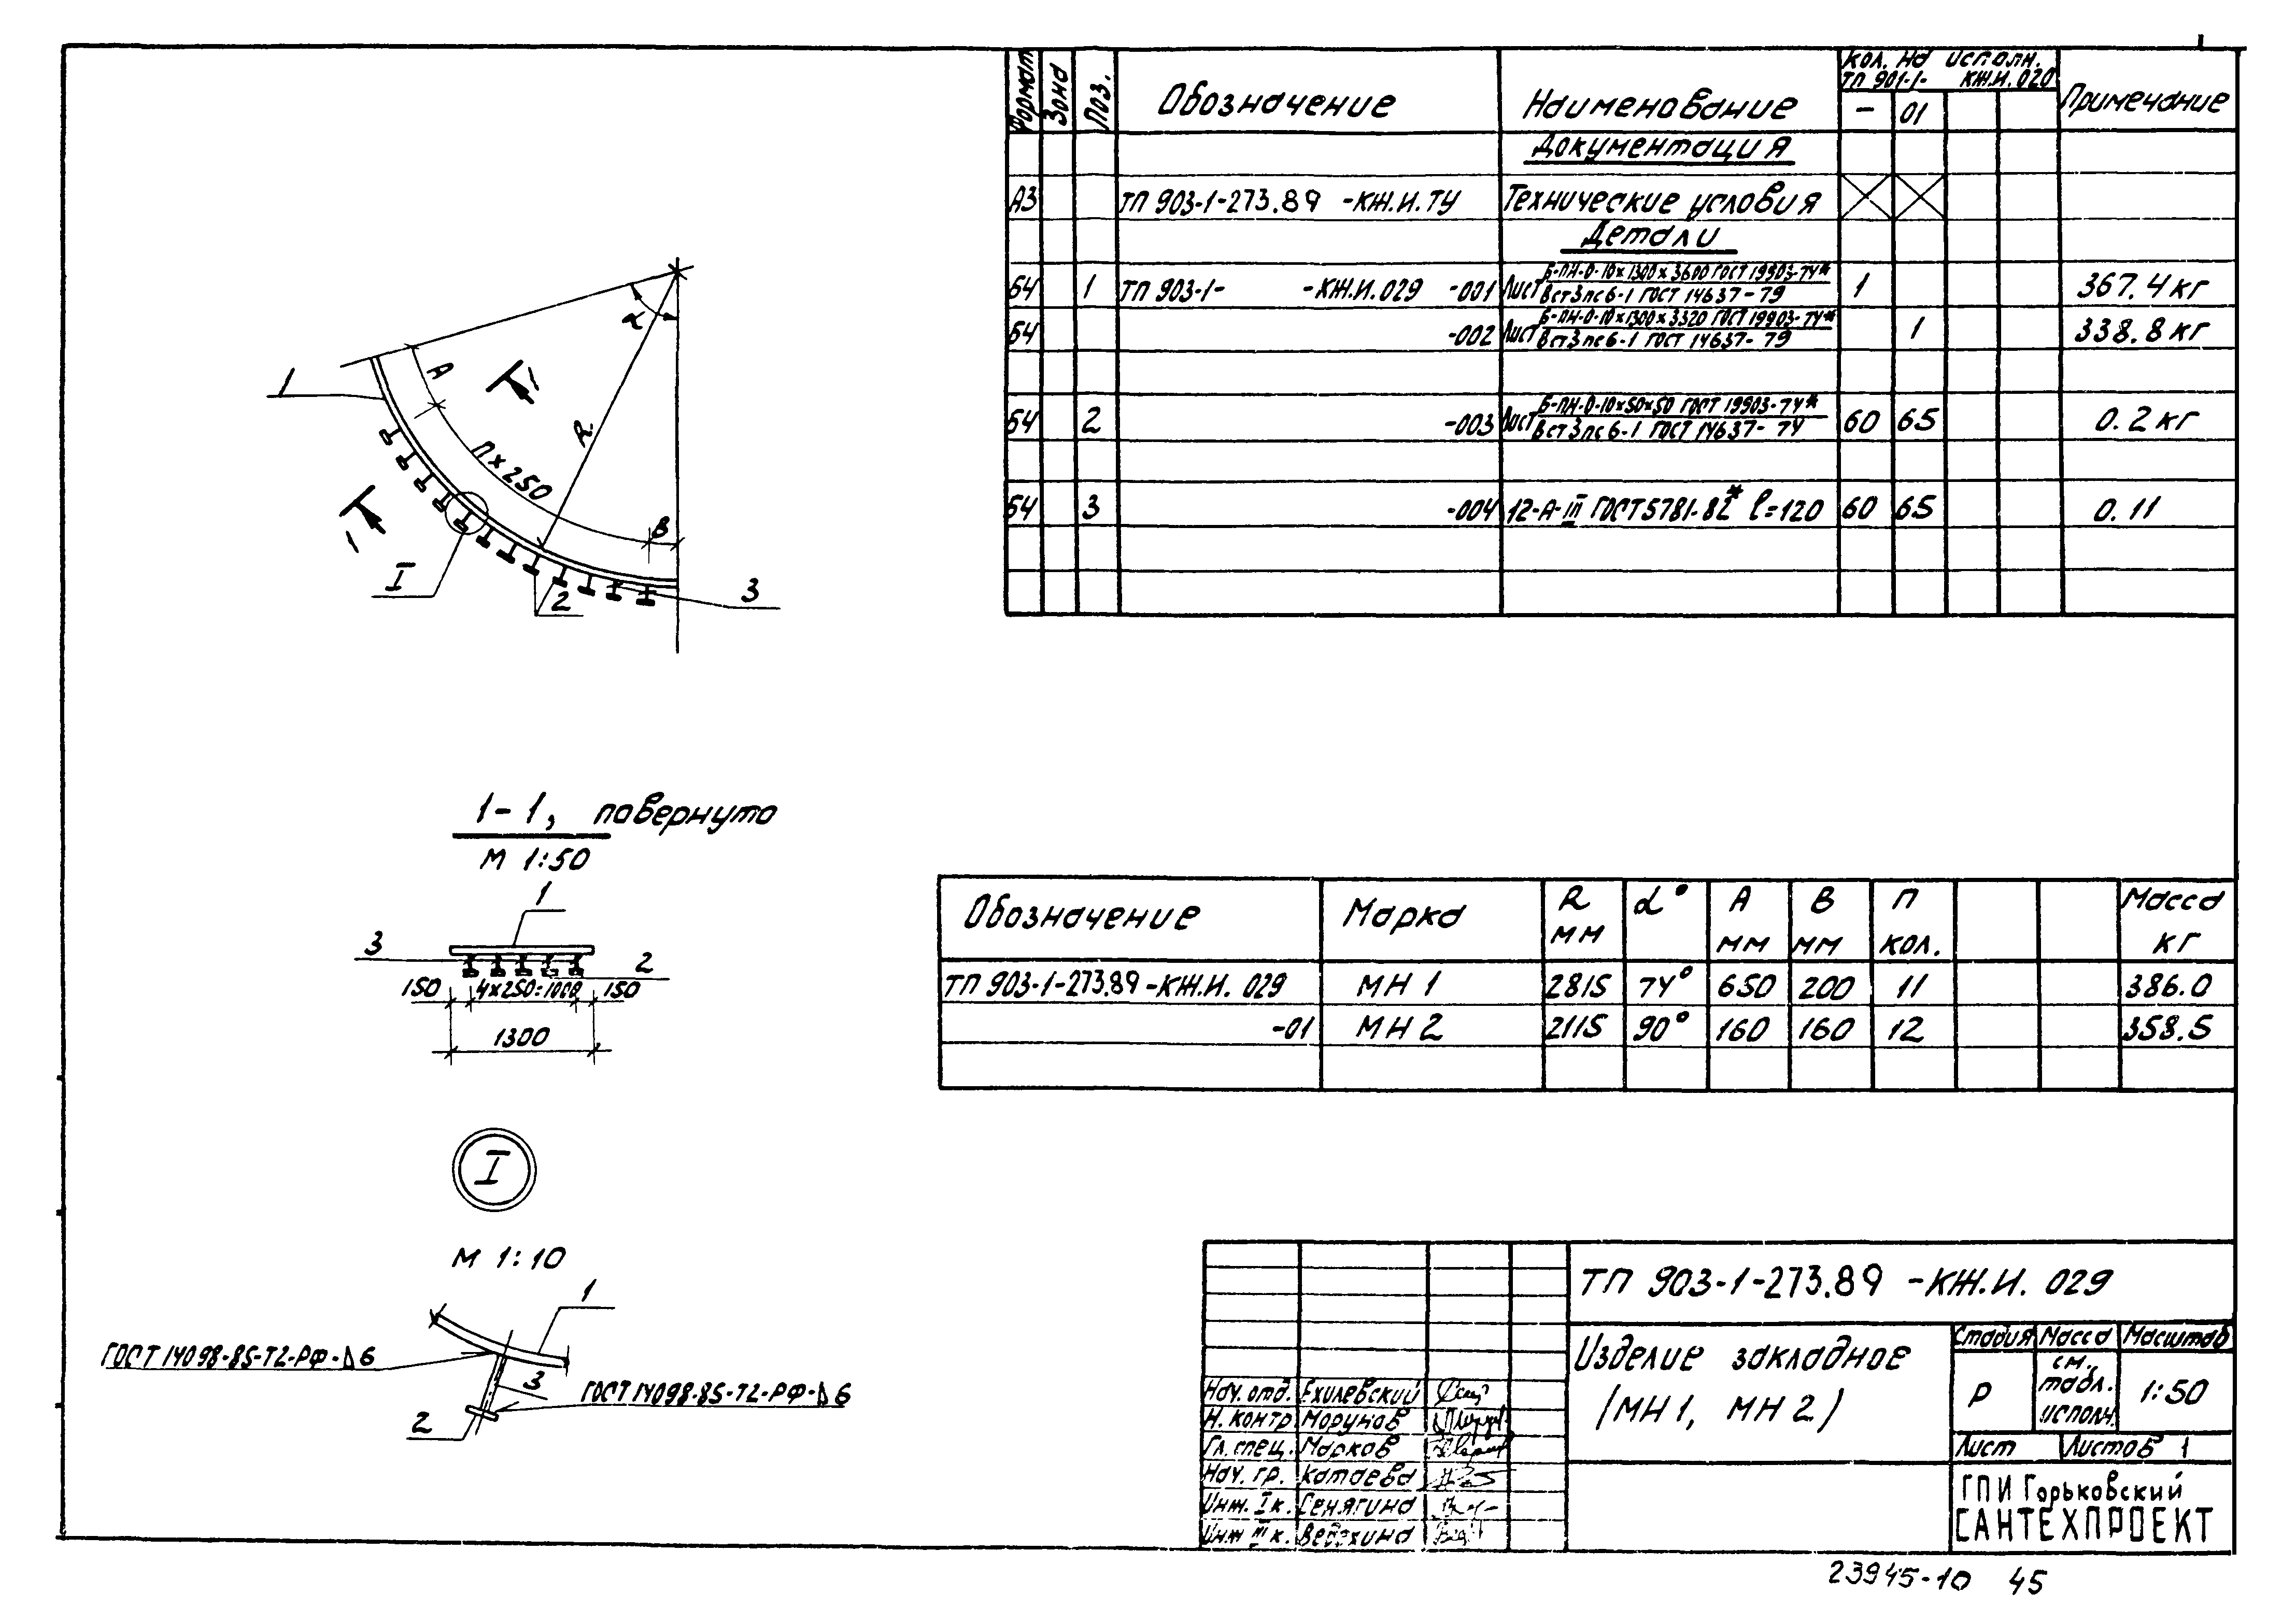 Формат Зона Поз. Обозначение Наименование Кол. на исполн. ТП 901-1- КЖ.И.020 Примечание
- 01
Документация
А3 ТП 903-1-273.89 -КЖ.И.ТУ Технические условия
Детали
Б4 1 ТП 903-1- -КЖ.И.029 -001 Лист Б-ПН-О-10х1300х3600 ГОСТ 19903-74* 1 367.4 кг
ВСт3пс6-1 ГОСТ 14637-79
Б4 -002 Лист Б-ПН-О-10х1300х3320 ГОСТ 19903-74* 1 338.8 кг
ВСт3пс6-1 ГОСТ 14637-79
Б4 2 -003 Лист Б-ПН-О-10х50х50 ГОСТ 19903-74* 60 65 0.2 кг
ВСт3пс6-1 ГОСТ 14637-74
Б4 3 -004 12-А-III ГОСТ 5781-82* l=120 60 65 0.11
α
А
1
1
R
п×250
В
1
I
2
3
1-1, повернуто
М 1:50
1
3
2
150 4×250=1000 150
1300
Обозначение Марка R мм α° А мм В мм п кол. Масса кг
ТП 903-1-273.89-КЖ.И. 029 МН 1 2815 74° 650 200 11 386.0
-01 МН 2 2115 90° 160 160 12 358.5
I
М 1:10
1
ГОСТ 14098-85-Т2-РФ-Δ6
3
ГОСТ 14098-85-Т2-РФ-Δ6
2
ТП 903-1-273.89 -КЖ.И. 029
Изделие закладное
(МН 1, МН 2)
Стадия Масса Масштаб
Р см. табл. исполн. 1:50
Лист Листов 1
Нач. отд. Ехилевский
Н. контр Морунов
Гл. спец. Марков
Нач. гр. Катаева
Инж. I к. Сенягина
Инж III к. Ведехина
ГПИ Горьковский
САНТЕХПРОЕКТ
23945-10 45